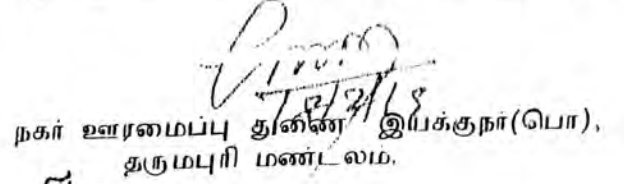 நகர் ஊரமைப்பு துணை இயக்குநர்(பொ),
தருமபுரி மண்டலம்.